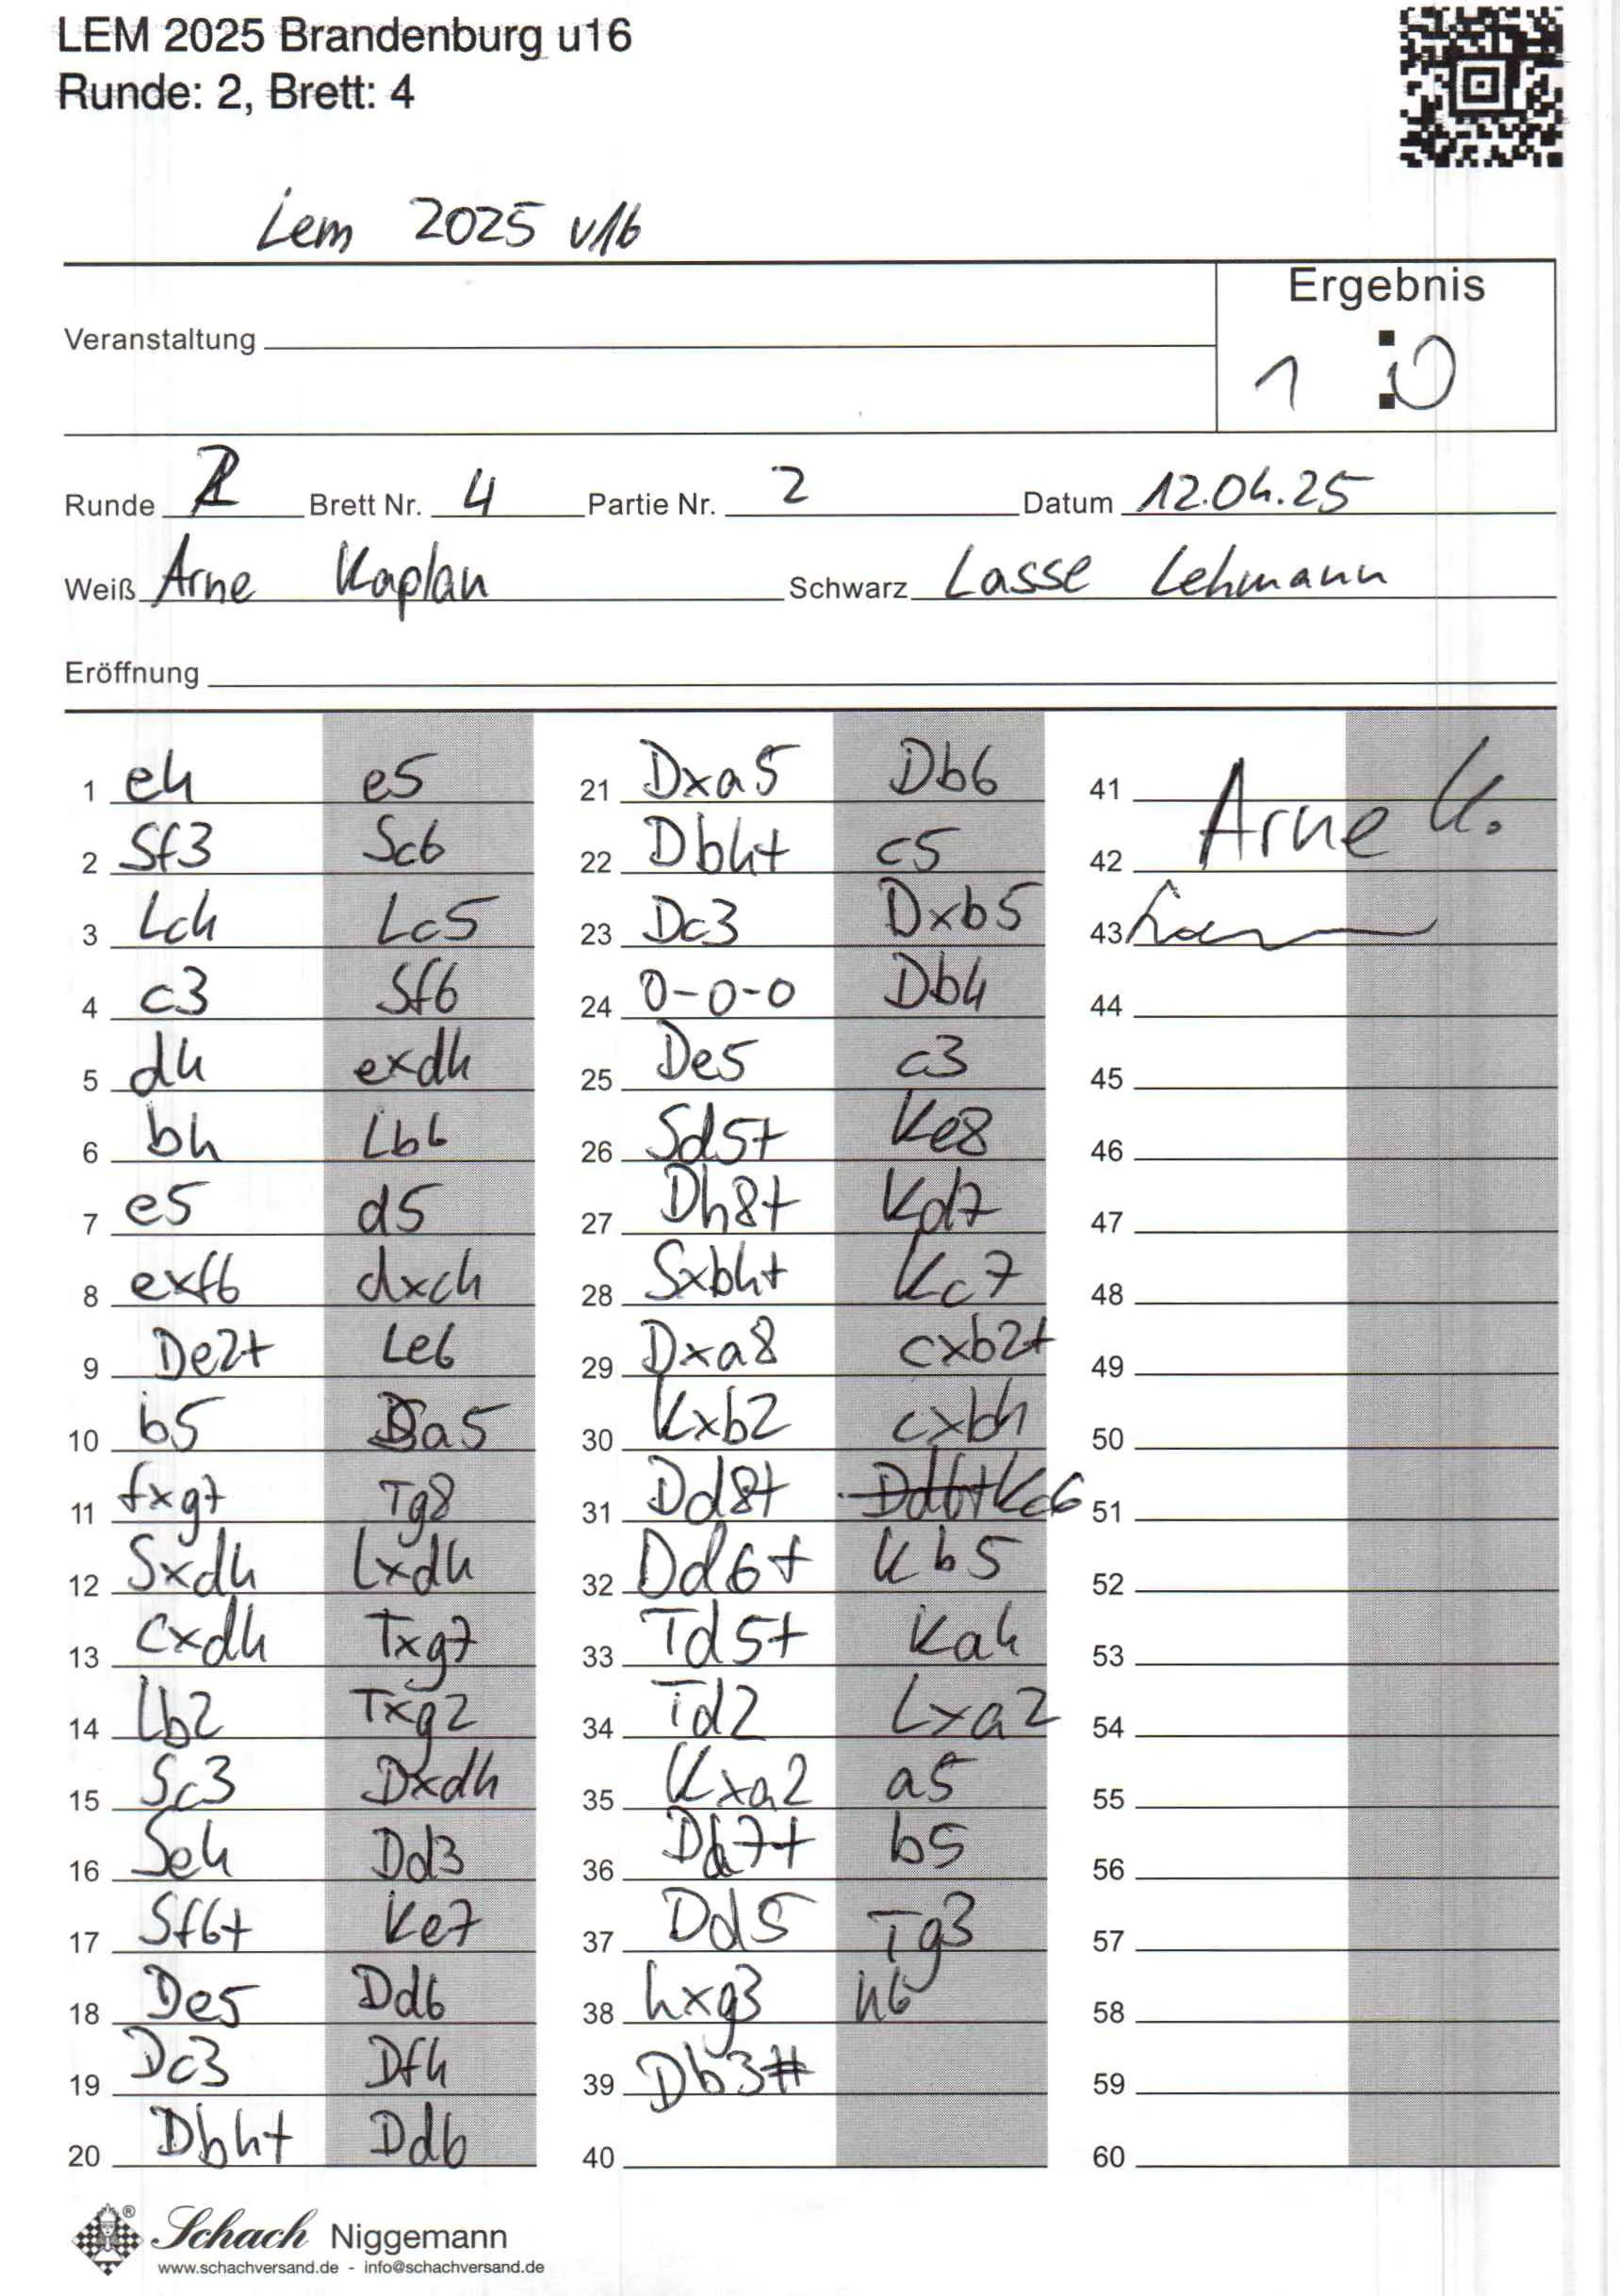 LEM 2025 Brandenburg u16
Runde: 2, Brett: 4
Lem 2025 u16
Ergebnis
Veranstaltung
1 : 0
Runde 2 Brett Nr. 4 Partie Nr. 2 Datum 12.04.25
Weiß Arne Kaplan Schwarz Lasse Lehmann
Eröffnung
1 e4 e5
2 Sf3 Sc6
3 Lc4 Lc5
4 c3 Sf6
5 d4 exd4
6 b4 Lb6
7 e5 d5
8 exf6 dxc4
9 De2+ Le6
10 b5 Sa5
11 fxg7 Tg8
12 Sxd4 Lxd4
13 cxd4 Txg7
14 Lb2 Txg2
15 Sc3 Dxd4
16 Se4 Dd3
17 Sf6+ Ke7
18 De5 Dd6
19 Dc3 Df4
20 Db4+ Dd6
21 Dxa5 Db6
22 Db4+ c5
23 Dc3 Dxb5
24 0-0-0 Db4
25 De5 c3
26 Sd5+ Ke8
27 Dh8+ Kd7
28 Sxb4+ Kc7
29 Dxa8 cxb2+
30 Kxb2 cxb4
31 Dd8+ Dd6+ Kc6
32 Dd6+ Kb5
33 Td5+ Ka4
34 Td2 Lxa2
35 Kxa2 a5
36 Dd7+ b5
37 Dd5 Tg3
38 hxg3 h6
39 Db3#
40
41 Arne K.
42
43
44
45
46
47
48
49
50
51
52
53
54
55
56
57
58
59
60
Schach Niggemann
www.schachversand.de - info@schachversand.de